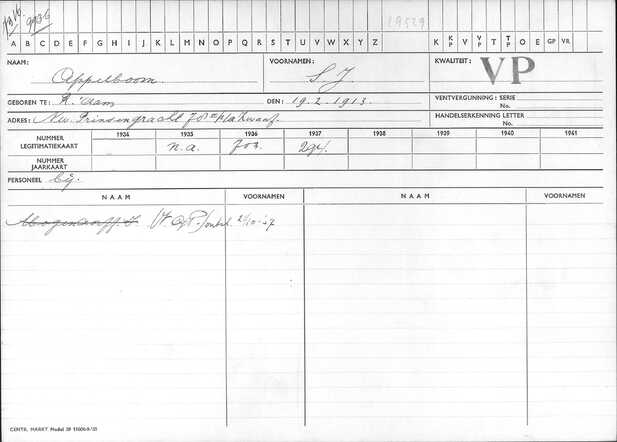 9936
19529
A B C D E F G H I J K L M N O P Q R S T U V W X Y Z K K/P V V/P T T/P O E GP VR.
NAAM: Appelboom. VOORNAMEN: S J. KWALITEIT: VP
GEBOREN TE: A'dam DEN: 19.2.1913. VENTVERGUNNING: SERIE No.
ADRES: Nw. Prinsengracht HANDELSERKENNING LETTER No.
NUMMER LEGITIMATIEKAART 1934 1935 1936 1937 1938 1939 1940 1941
n.a. 703. 294.
NUMMER JAARKAART
PERSONEEL bij:
NAAM VOORNAMEN NAAM VOORNAMEN
CENTR. MARKT Model 39